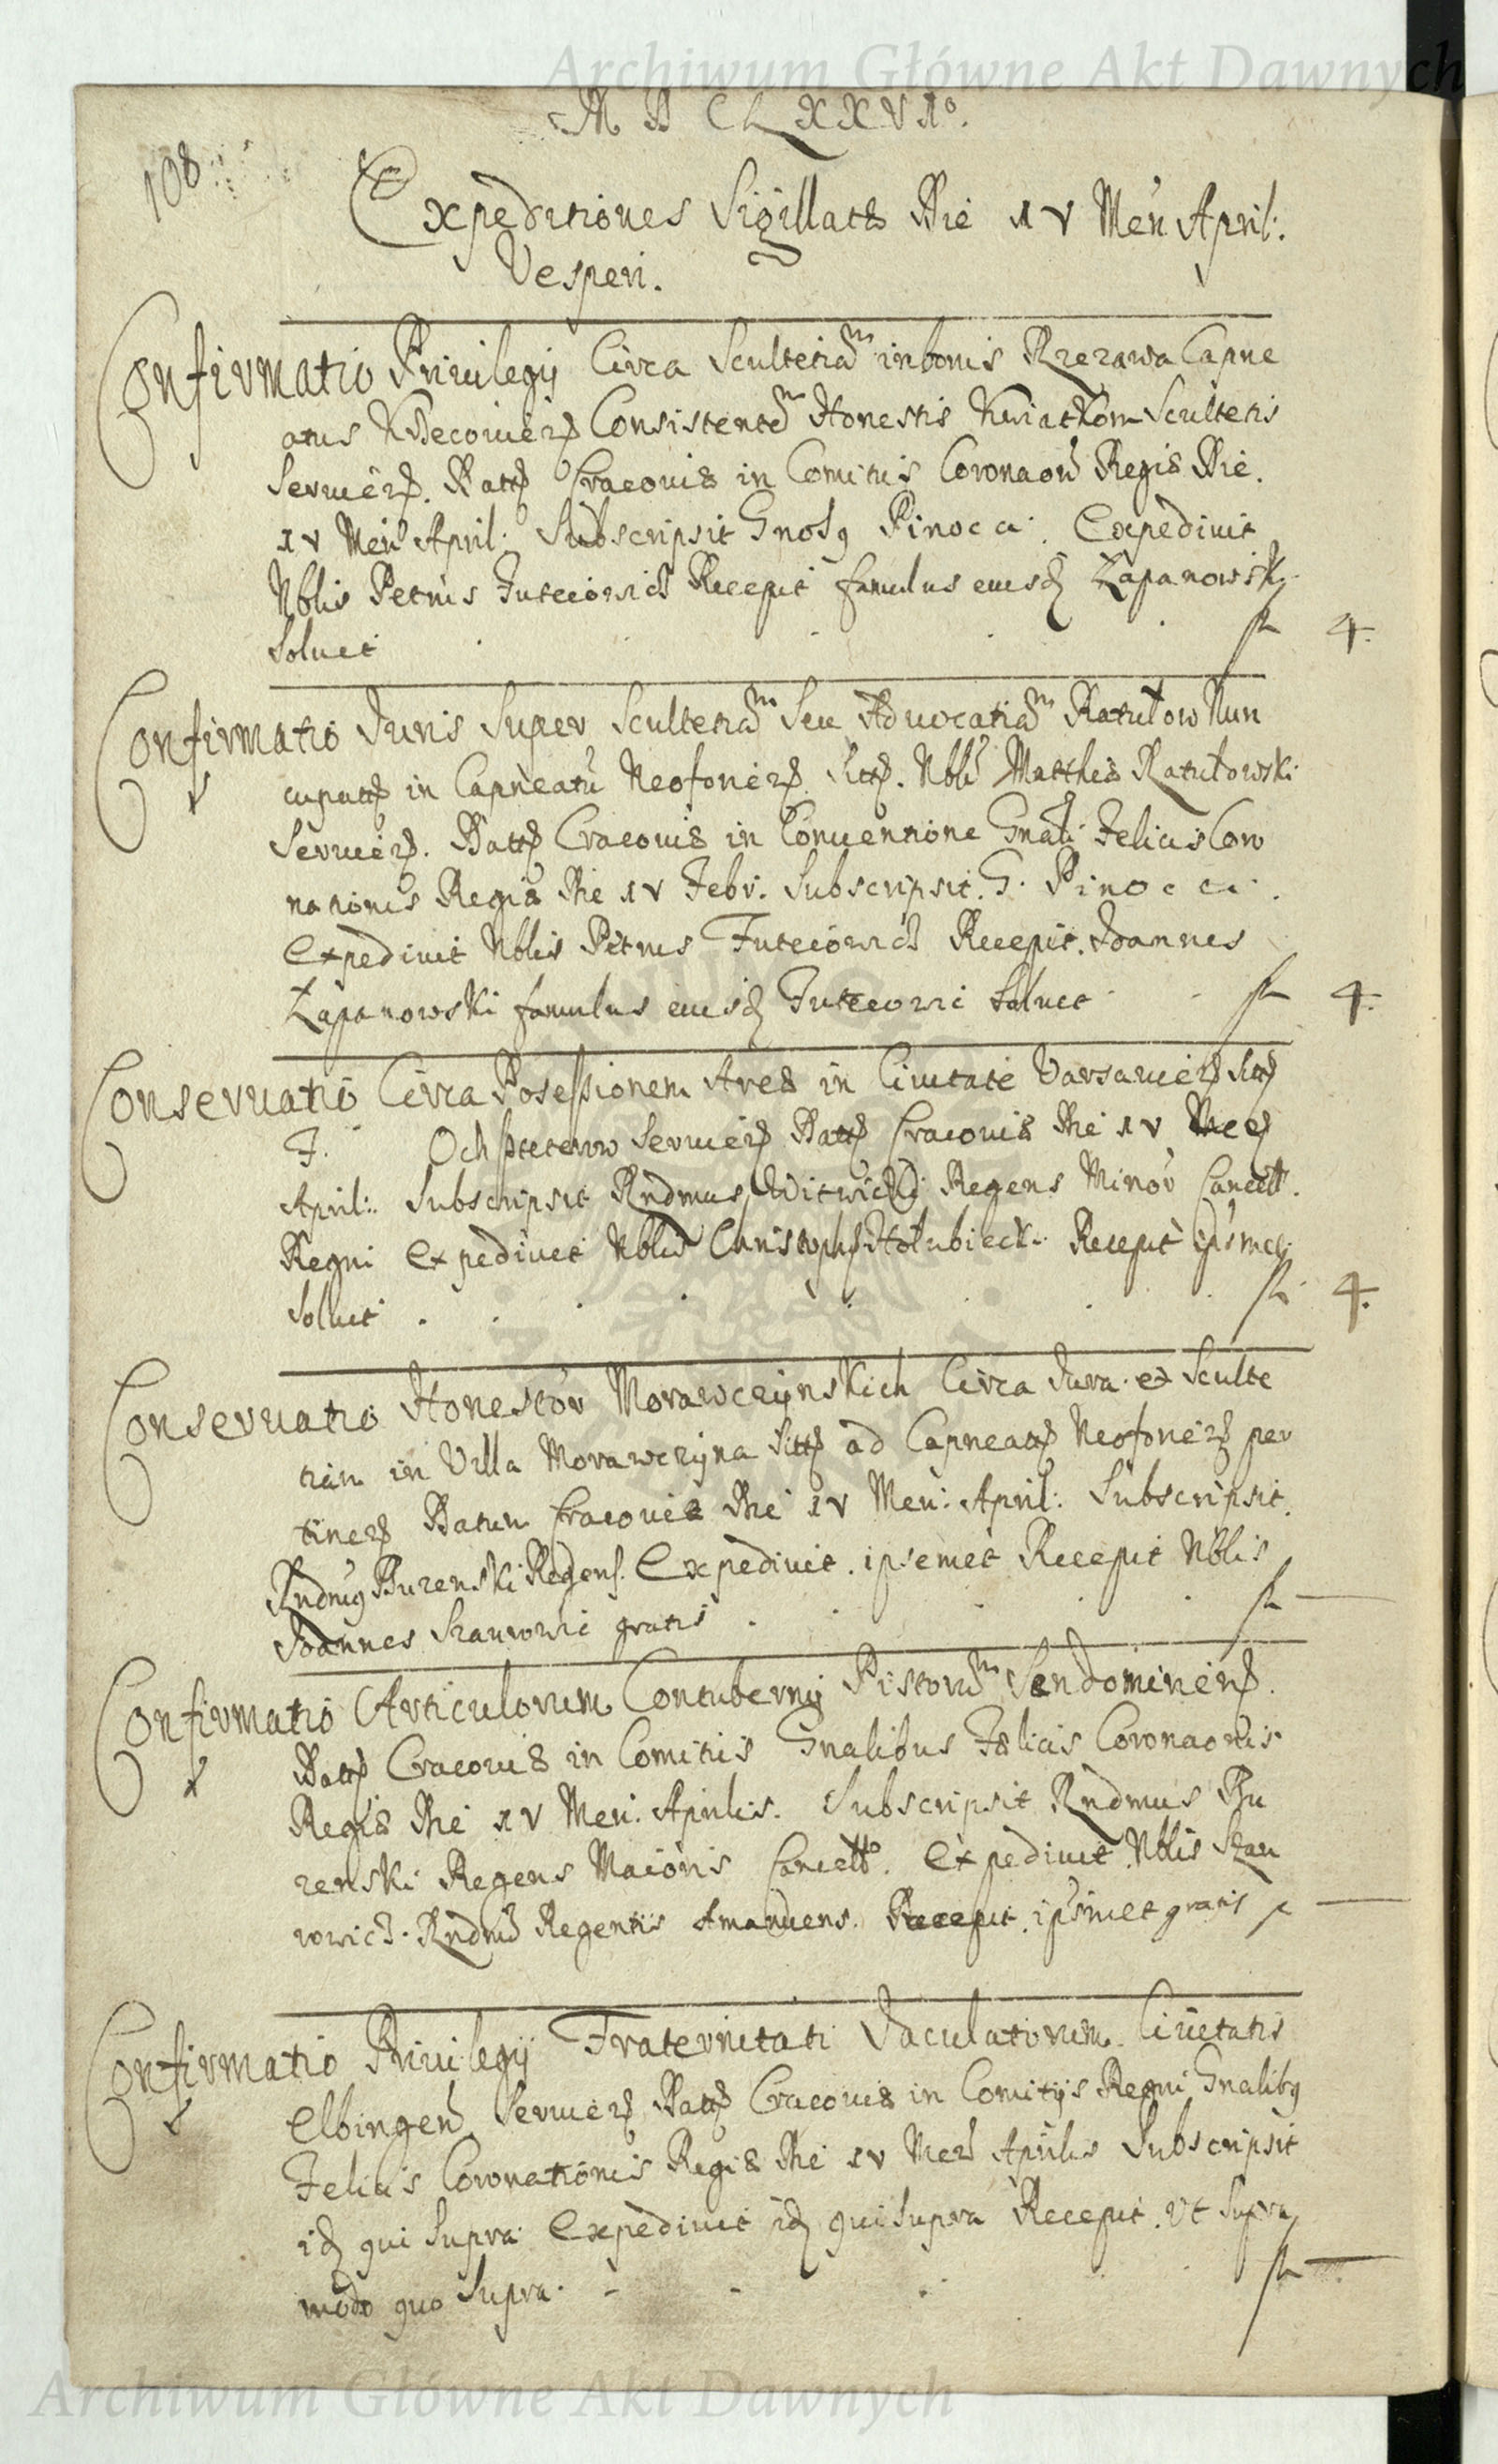 Archiwum Główne Akt Dawnych
M D C L X X V Io.
108
Expeditiones Sigillatæ Die 1V Men April:
Vesperi.
Confirmatio Privilegij Circa Scultetiam in bonis Rzezawa Capne
atus Consistentem Honestis Kwiatkom Scultetis
Servien. Datt Cracoviæ in Comitiis Coronaoni Regiæ Die.
1V Men April: Subscripsit Gnosg Pinocci. Expedivit
Nblis Petrus Jutecowicz Recepit famulus eiusd Łapanowsky.
Soluit fl 4.
Confirmatio Iuris Super Scultetiam Seu Advocatiam Ratułow Nun
cupatt in Capneatu Neoforien. Sitt. Nbli Matthiæ Ratułowski
Servien. Datt Cracoviæ in Conventione Gnali Felicis Coro
nationis Regiæ Die 1V Febr. Subscripsit. G. Pinocci.
Expedivit Nblis Petrus Jutecowicz Recepit. Joannes
Łapanowski famulus eiusd Jutecowic Soluit fl 4.
Conservatio Circa Posessionem Areæ in Civitate Varsavien Sitt
F. Servien Datt Cracoviæ Die 1V Mens
April: Subscripsit Rndmus Witwicki Regens Minor Cancell.
Regni Expedivit Nblis Christoph Hołubicki Recepit ipsmet
Soluit fl 4.
Conservatio Honestor Morawczynskich Circa Iura et Sculte
tiam in Villa Morawczyna Sitt ad Capneatt Neoforien per
tinen Datum Cracoviæ Die 1V Men: April: Subscripsit.
Rndmg Burenski Regens. Expedivit. ipsemet Recepit Nblis
Joannes Szaurowic gratis fl —
Confirmatio Articulorum Contubernij Pistorum Sendomirien.
Datt Cracoviæ in Comitiis Gnalibus Fælicis Coronaonis
Regiæ Die 1V Men. Aprilis. Subscripsit Rndmus Bu
renski Regens Maioris Cancell. Expedivit. Nblis Szau
rowicz. Rndmi Regentis Amanuens. Recepit. ipsimet gratis fl —
Confirmatio Privilegij Fraternitati Jaculatorum. Civitatis
Elbingen Servien Datt Cracoviæ in Comitijs Regni Gnalibg
Felicis Coronationis Regiæ Die 1V Mens Aprilis Subscripsit
id qui Supra Expedivit id qui Supra Recepit. Ut Supra
modo quo Supra. fl —
Archiwum Główne Akt Dawnych